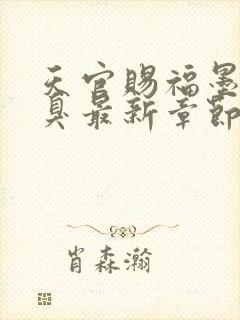 天官赐福墨
臭最新章节
肖森瀚